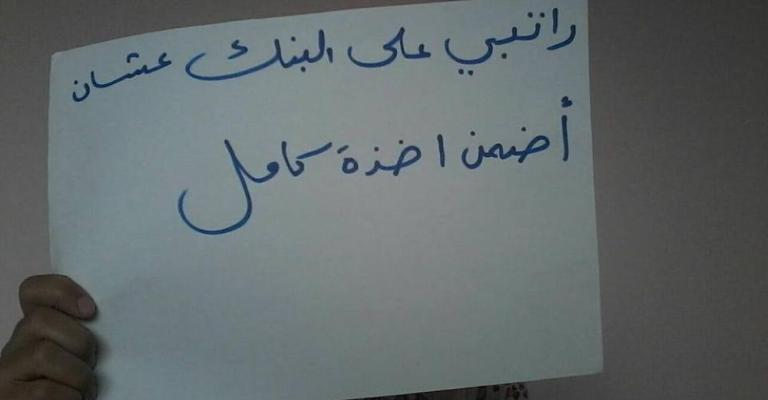 راتبي على البنك عشان
أضمن اخذة كامل